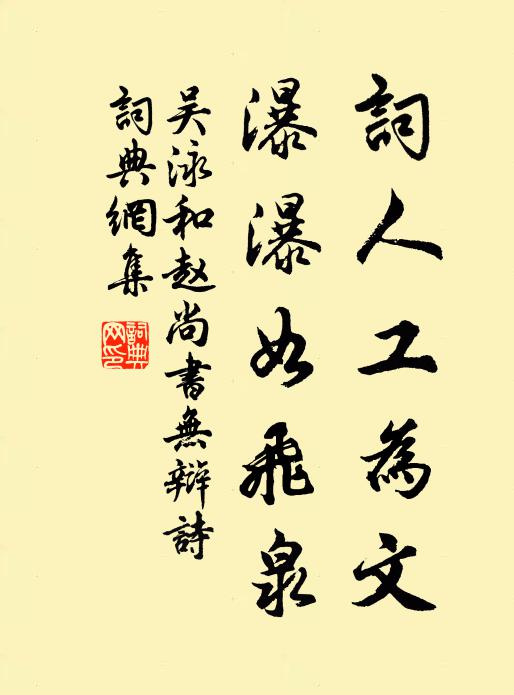 詞人工為文
瀑瀑如飛泉
吴泳和赵尚書無辯詩
詞典網集
詞典网印